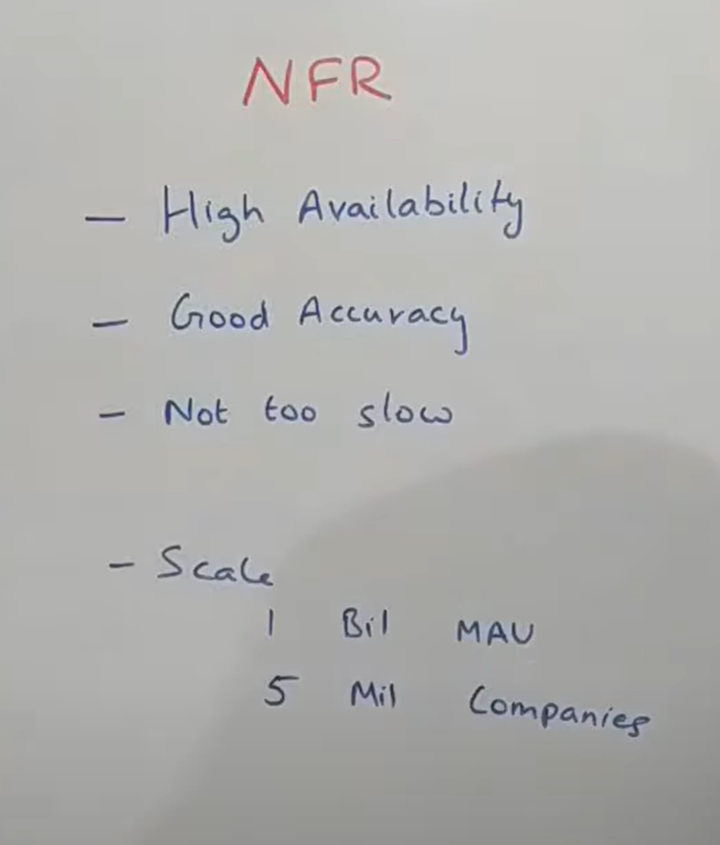 NFR
- High Availability
- Good Accuracy
- Not too slow
- Scale
1 Bil MAU
5 Mil Companies